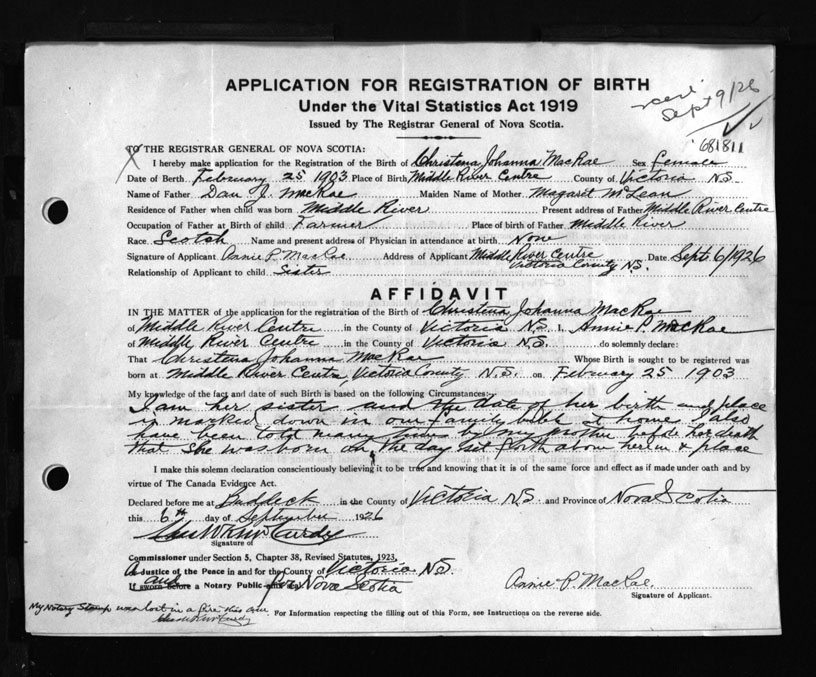 APPLICATION FOR REGISTRATION OF BIRTH
Under the Vital Statistics Act 1919
Issued by The Registrar General of Nova Scotia.
Sept 9/26
681811
TO THE REGISTRAR GENERAL OF NOVA SCOTIA:
I hereby make application for the Registration of the Birth of Christena Johanna MacRae Sex female
Date of Birth February 25 1903 Place of Birth Middle River Centre County of Victoria N.S.
Name of Father Dan J. MacRae Maiden Name of Mother Magaret McLean
Residence of Father when child was born Middle River Present address of Father Middle River Centre
Occupation of Father at Birth of child Farmer Place of birth of Father Middle River
Race Scotch Name and present address of Physician in attendance at birth None
Signature of Applicant Annie P. MacRae Address of Applicant Middle River Centre Victoria County N.S. Date Sept. 6/1926
Relationship of Applicant to child Sister
AFFIDAVIT
IN THE MATTER of the application for the registration of the Birth of Christena Johanna MacRae
of Middle River Centre in the County of Victoria N.S. I, Annie P. MacRae
of Middle River Centre in the County of Victoria N.S. do solemnly declare:
That Christena Johanna MacRae Whose Birth is sought to be registered was
born at Middle River Centre, Victoria County N.S. on February 25 1903
My knowledge of the fact and date of such Birth is based on the following Circumstances:-
I am her sister and the date of her birth and place
is marked down in our family bible at home, also
have been told many times by my mother before her death
that she was born on the day set forth above herein & place
I make this solemn declaration conscientiously believing it to be true and knowing that it is of the same force and effect as if made under oath and by
virtue of The Canada Evidence Act.
Declared before me at Baddeck in the County of Victoria N.S. and Province of Nova Scotia
this 6th day of September 1926
Signature of
Commissioner under Section 5, Chapter 38, Revised Statutes, 1923,
A Justice of the Peace in and for the County of Victoria N.S.
If sworn before a Notary Public and for Nova Scotia
and
Annie P. MacRae
Signature of Applicant.
My Notary Stamp was lost in a fire this
For Information respecting the filling out of this Form, see Instructions on the reverse side.